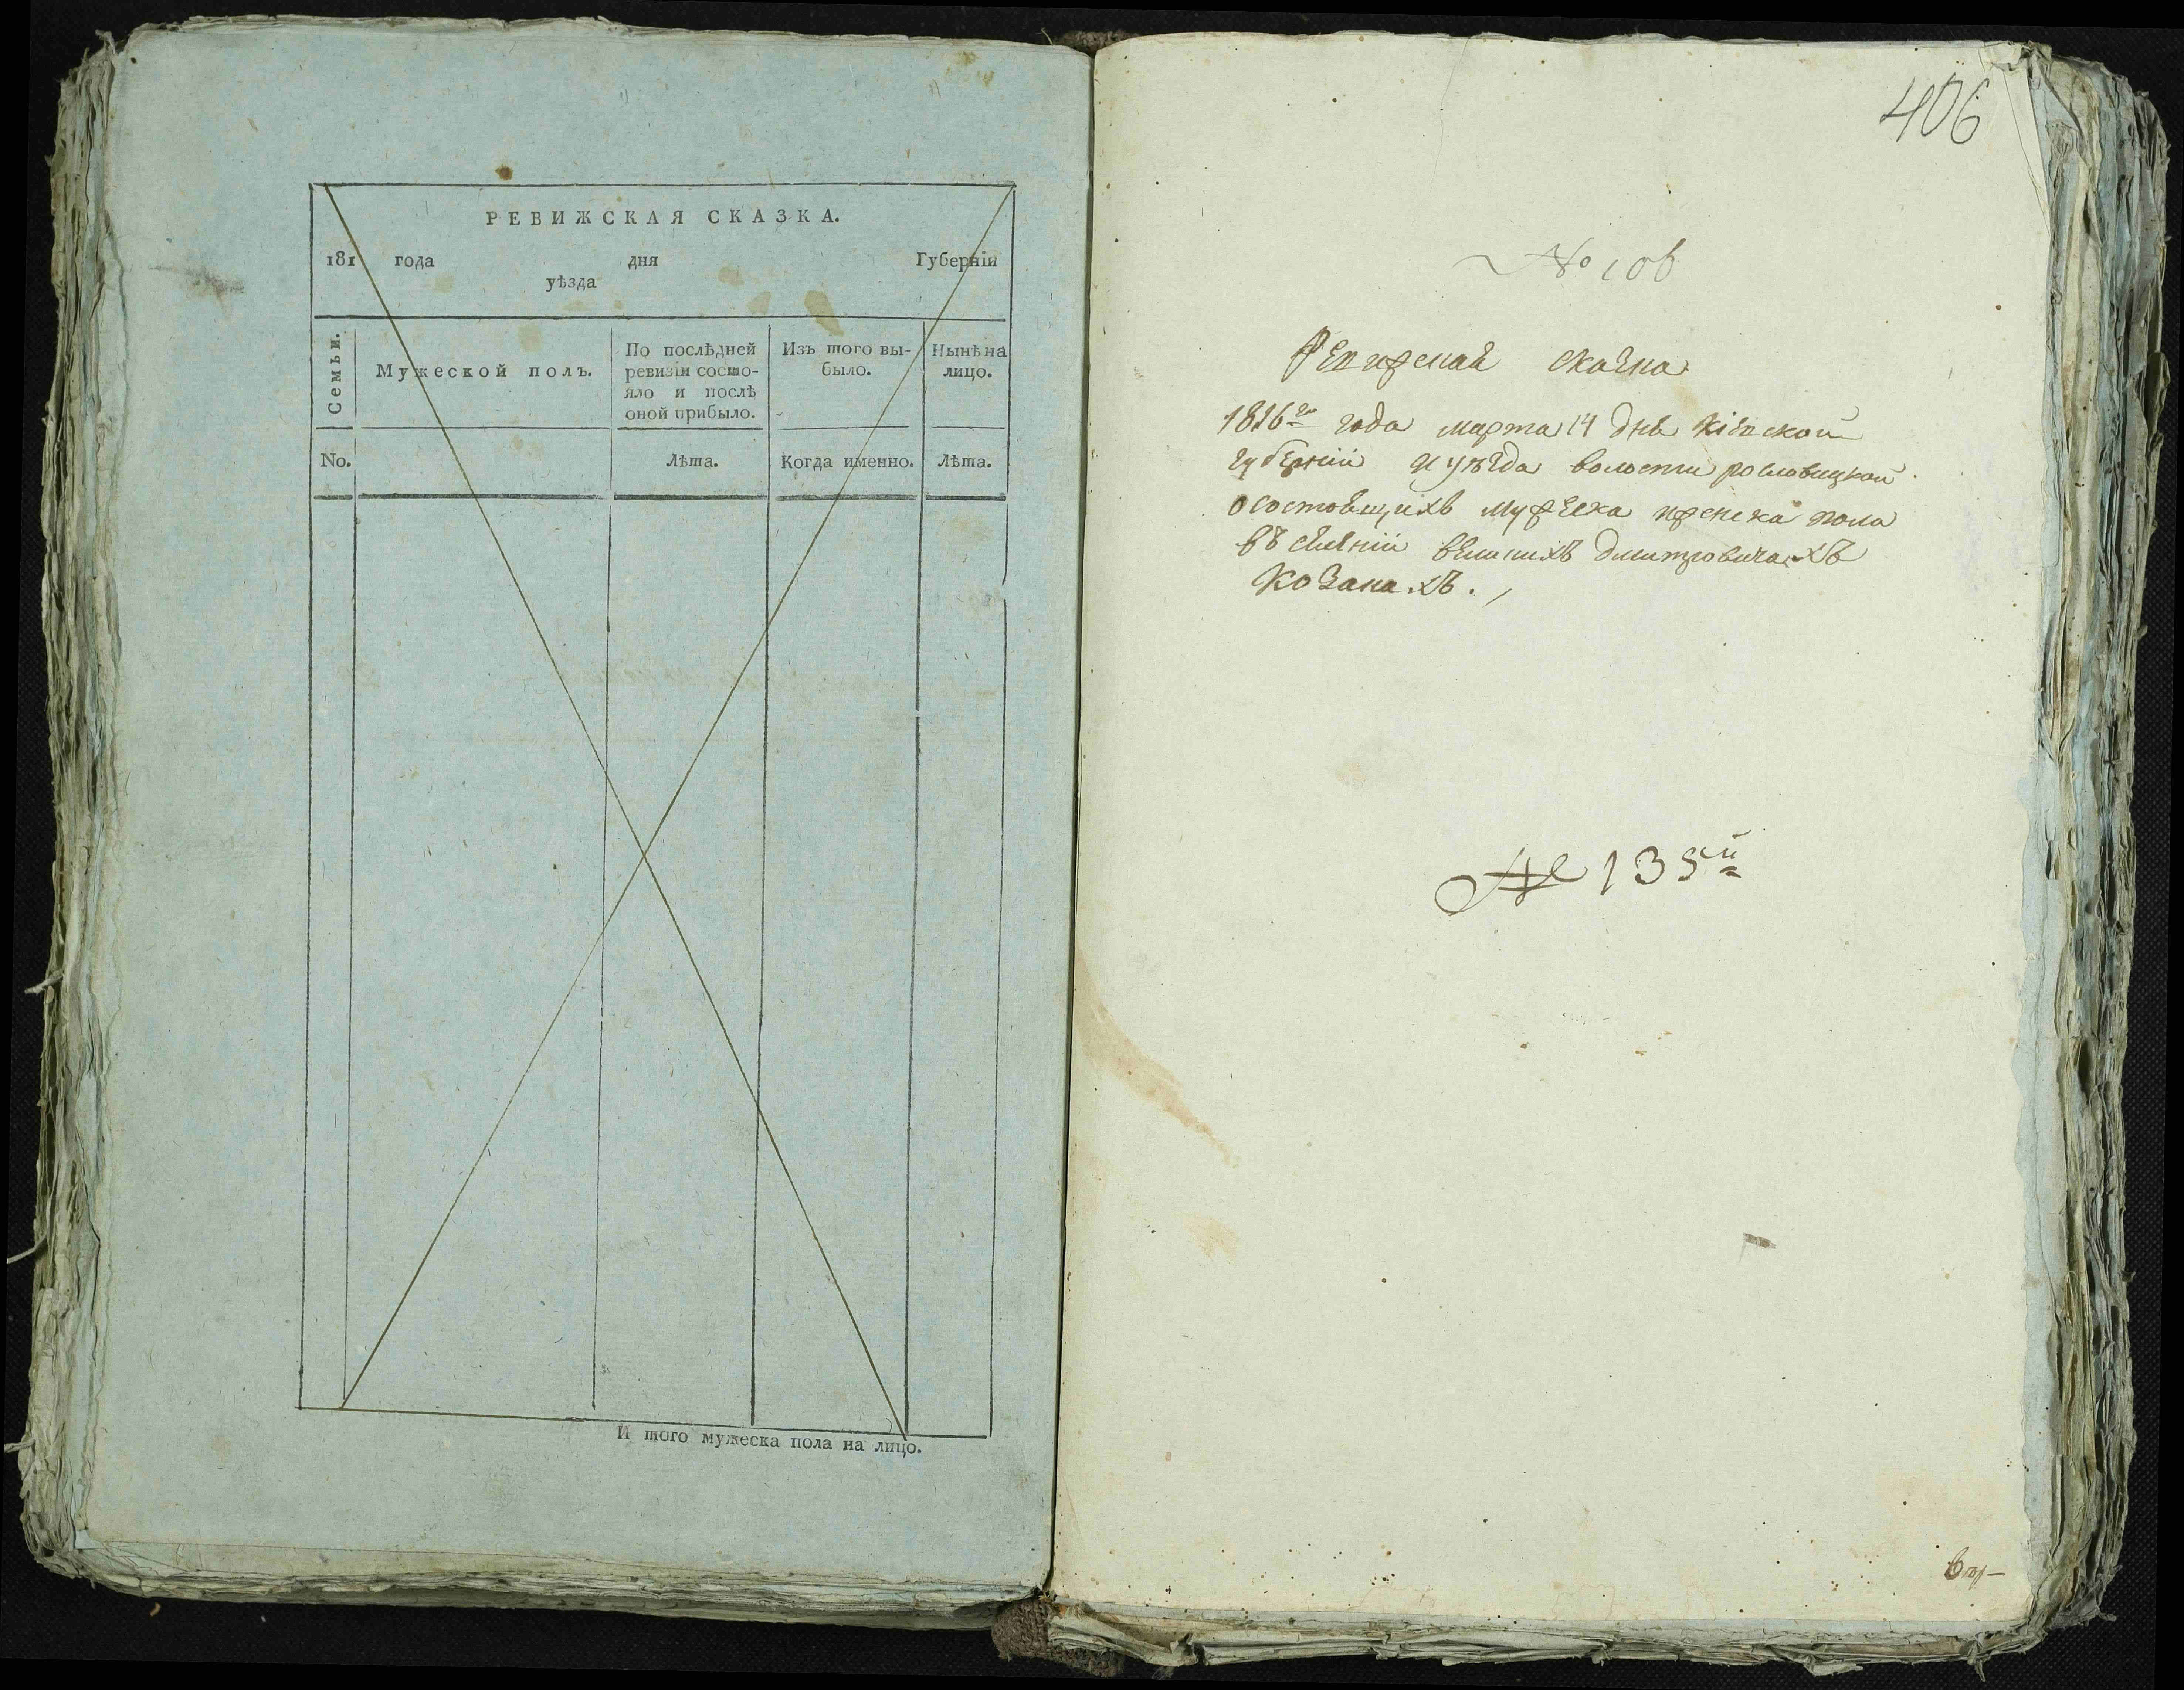 РЕВИЖСКАЯ СКАЗКА.
181 года дня Губернїи
уѣзда
Семьи.
Мужеской полъ.
По послѣдней
ревизїи состо-
яло и послѣ
оной прибыло.
Изъ того вы-
было.
Нынѣ на
лицо.
No.
Лѣта.
Когда именно.
Лѣта.
И того мужеска пола на лицо.
406
No 106
Ревизская сказка
1816го года марта 14 дня Кіевской
губерніи и уѣзда волости рословицкой
о состоящихъ мужеска и женска пола
въ селеніи великихъ дмитровичахъ
козакахъ.
№ 135й